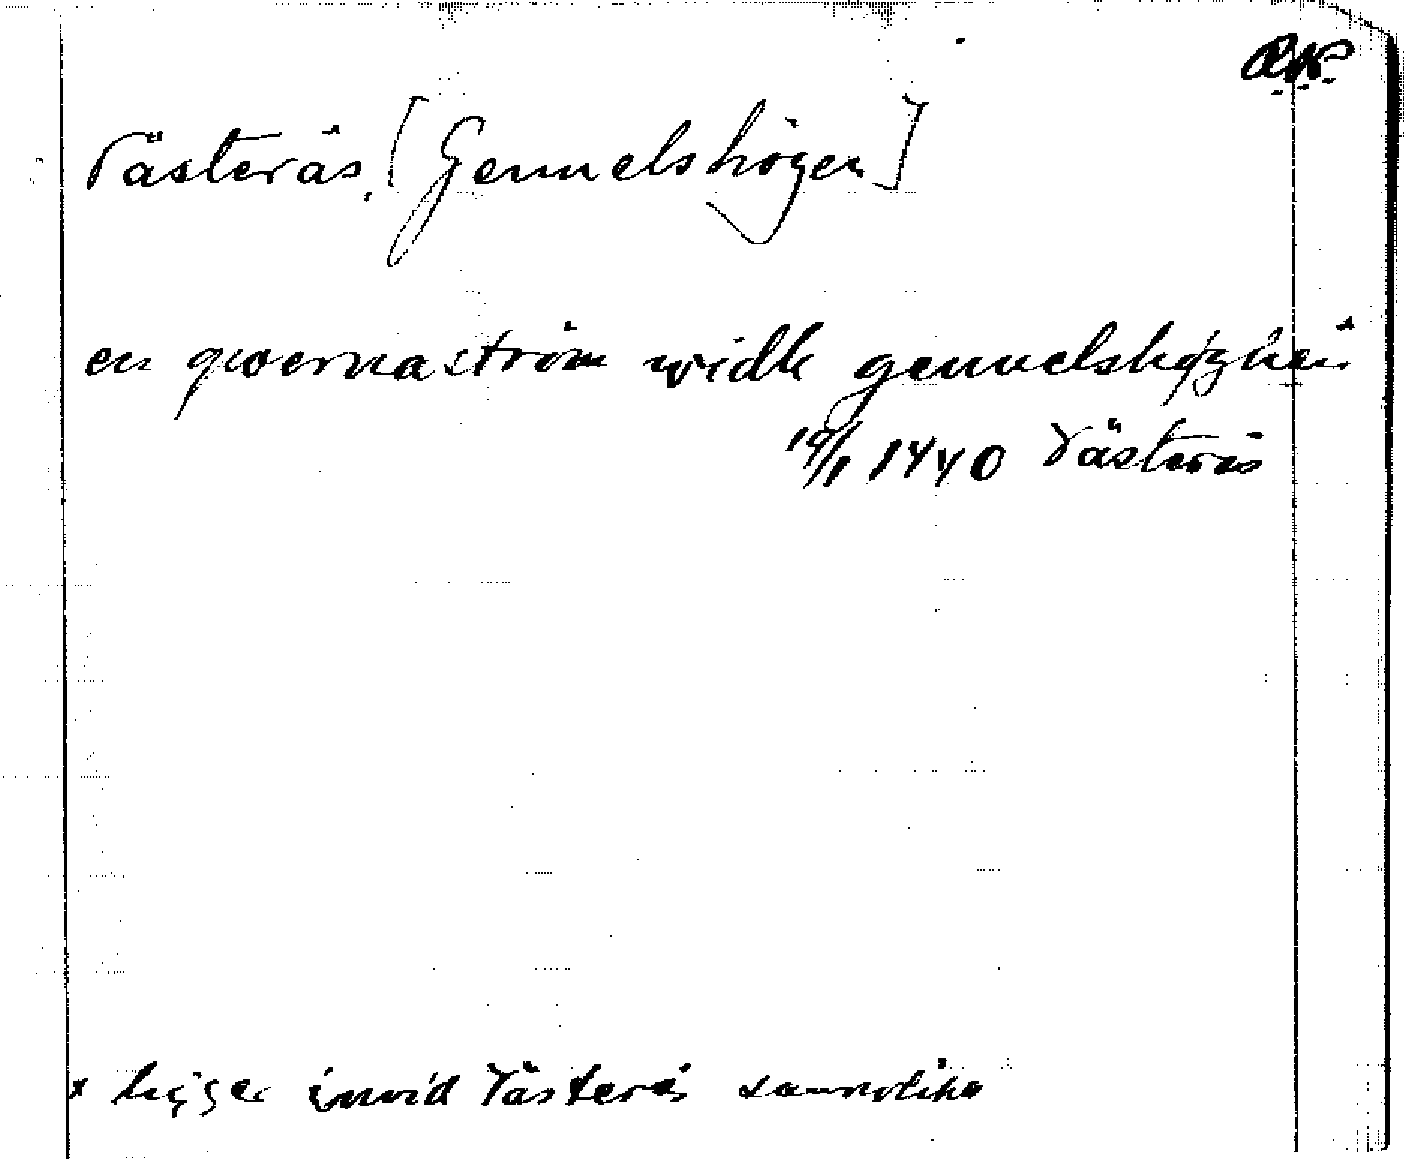 Västerås. [Gennelshögen]
en qwernaström widh gennelshøghen
19/1 1440 Västerås
x ligger invid Västerås sannolikt